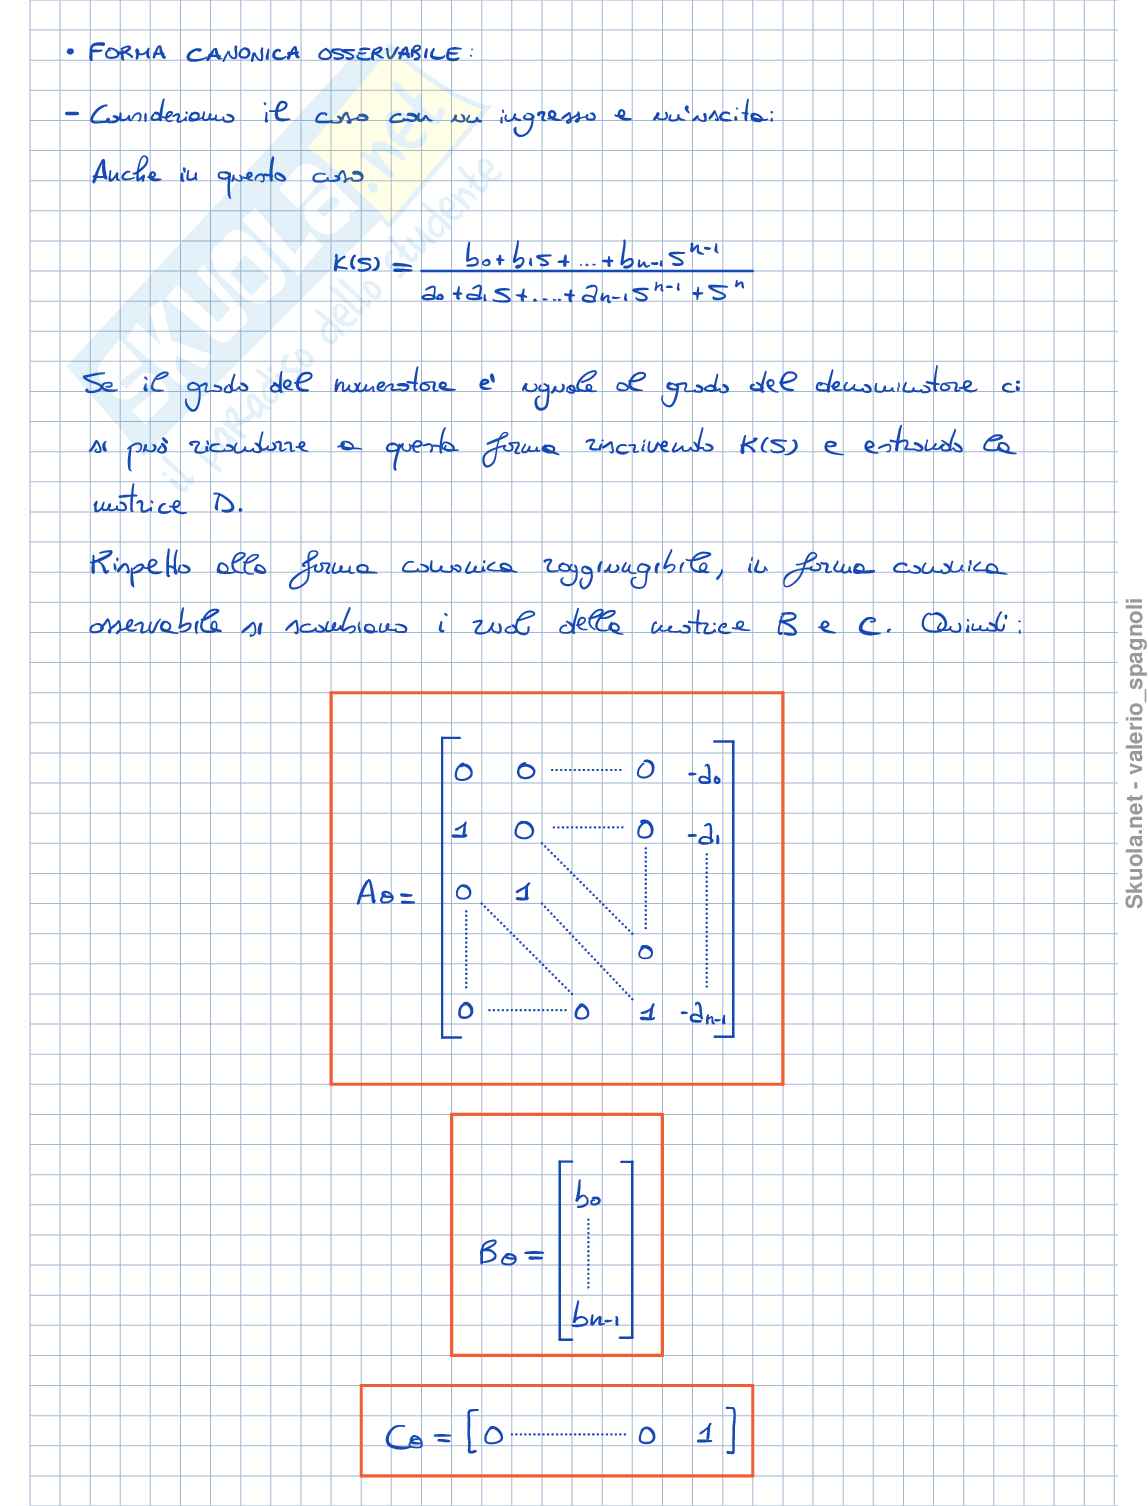 • FORMA CANONICA OSSERVABILE:
- Consideriamo il caso con un ingresso e un'uscita:
Anche in questo caso
K(S) = (b0+b1S+...+bn-1S^n-1) / (a0+a1S+....+an-1S^n-1+S^n)
Se il grado del numeratore e' uguale al grado del denominatore ci
si può ricondurre a questa forma riscrivendo K(S) e estraendo la
matrice D.
Rispetto alla forma canonica raggiungibile, in forma canonica
osservabile si scambiano i ruoli della matrice B e C. Quindi:
Aθ=
0 0 ........ 0 -a0
1 0 ........ 0 -a1
0 1
0
0 ........ 0 1 -an-1
Bθ=
b0
bn-1
Cθ = [0 ........ 0 1]
SKUOLA.net
il paradiso dello studente
Skuola.net - valerio_spagnoli